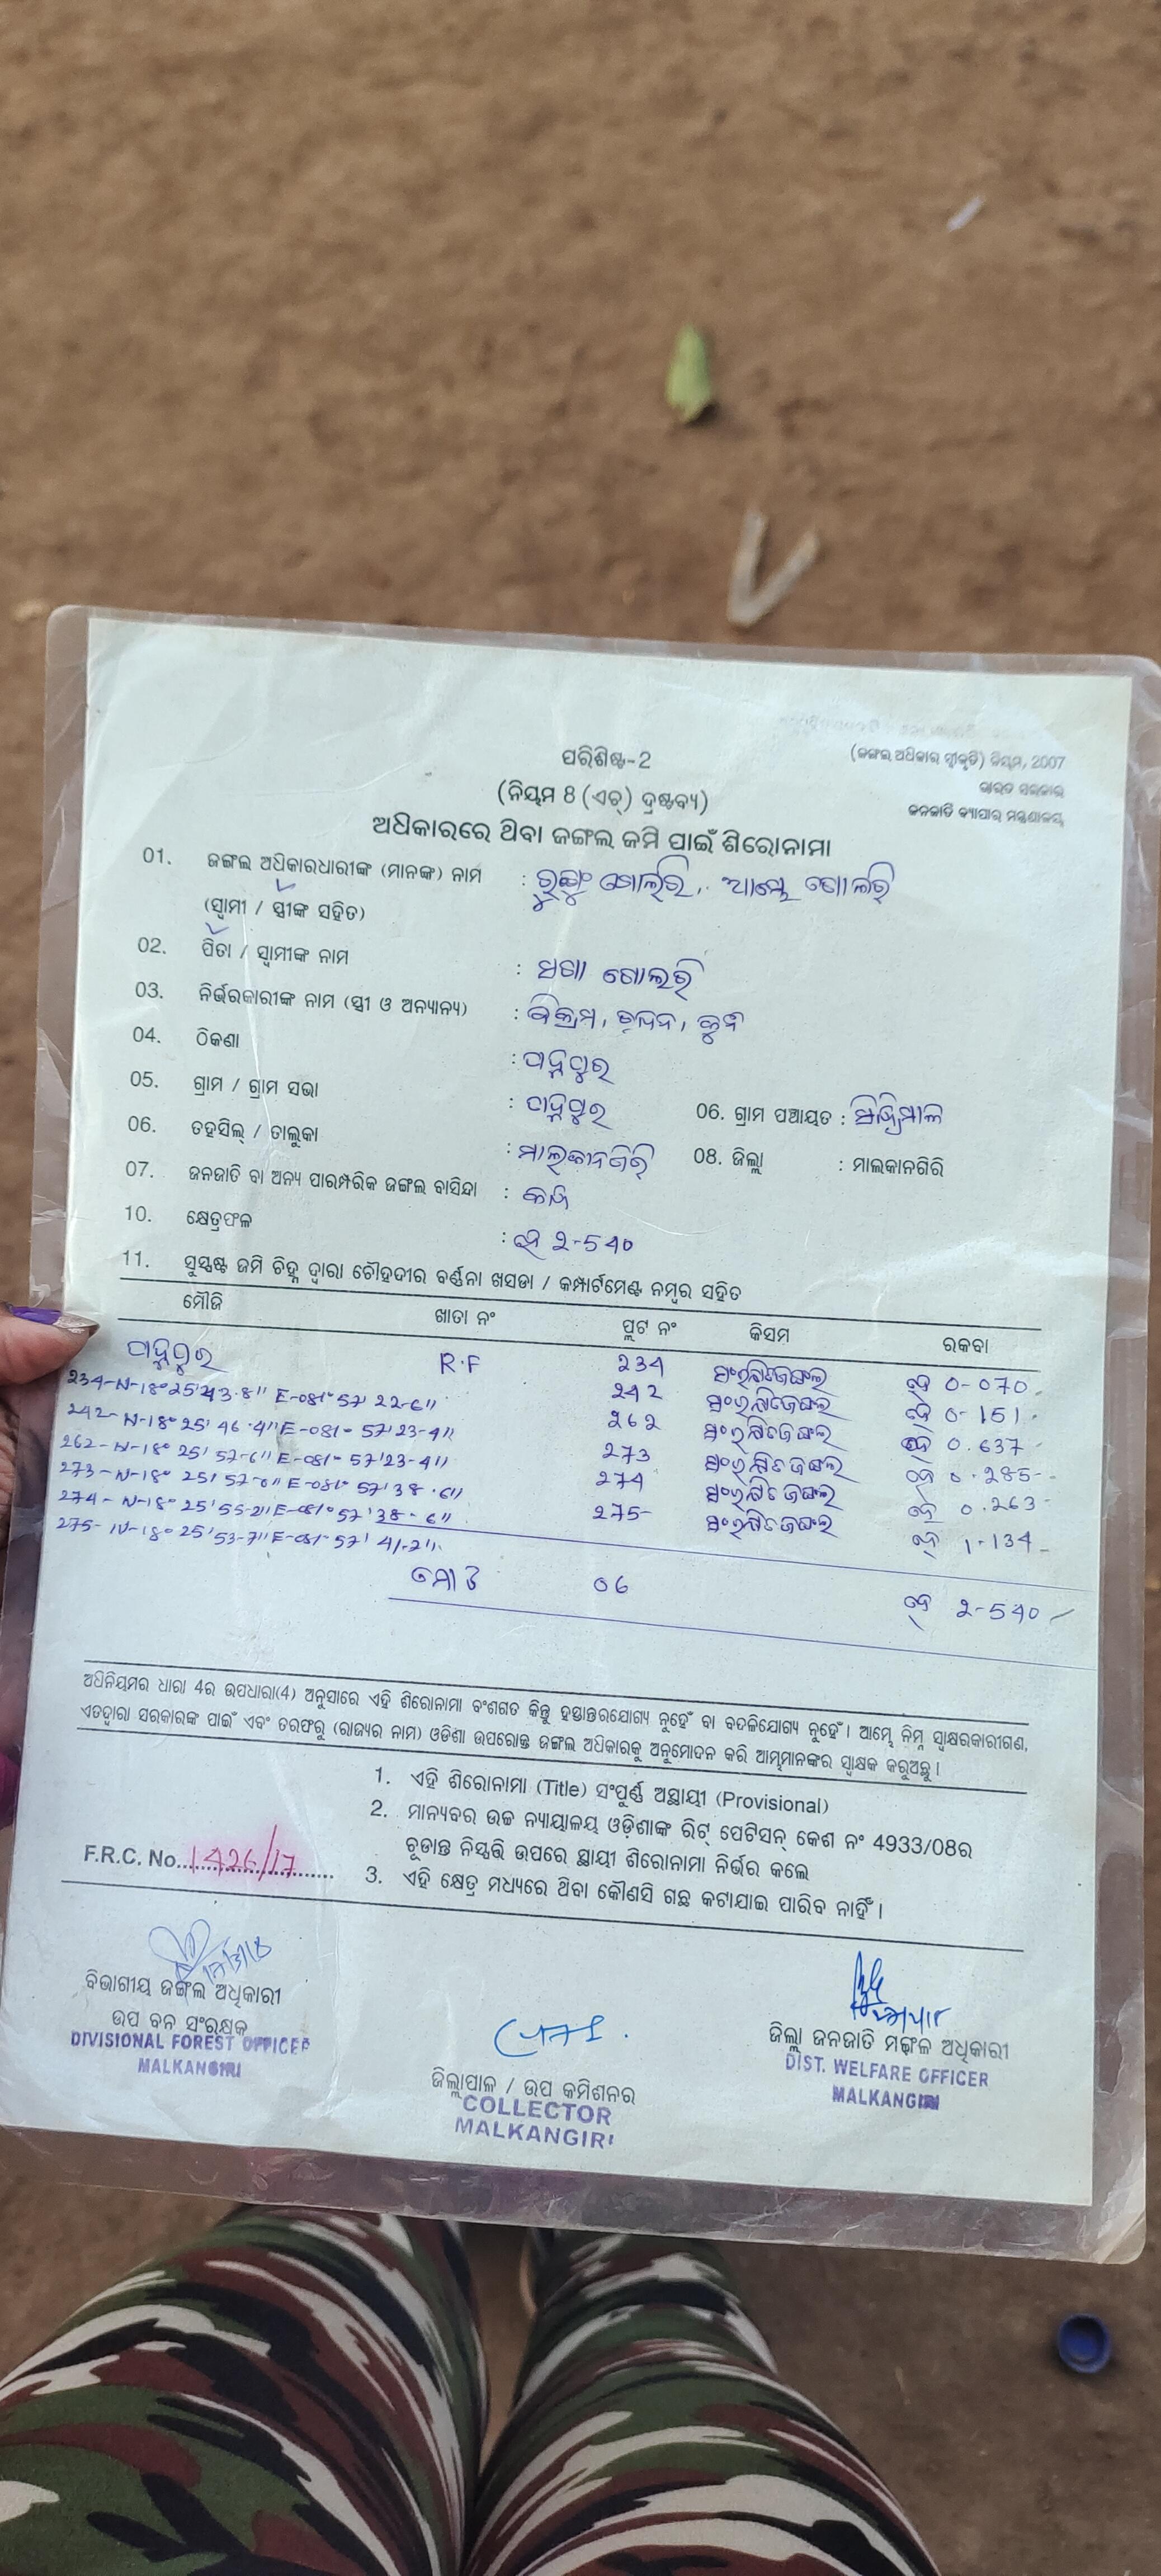 (ଜଙ୍ଗଲ ଅଧିକାର ସ୍ୱୀକୃତି) ନିୟମ, 2007
ଭାରତ ସରକାର
ଜନଜାତି ବ୍ୟାପାର ମନ୍ତ୍ରଣାଳୟ
ପରିଶିଷ୍ଟ-2
(ନିୟମ 8 (ଏଚ୍) ଦ୍ରଷ୍ଟବ୍ୟ)
ଅଧିକାରରେ ଥିବା ଜଙ୍ଗଲ ଜମି ପାଇଁ ଶିରୋନାମା
01. ଜଙ୍ଗଲ ଅଧିକାରଧାରୀଙ୍କ (ମାନଙ୍କ) ନାମ :
(ସ୍ୱାମୀ / ସ୍ତ୍ରୀଙ୍କ ସହିତ)
02. ପିତା / ସ୍ୱାମୀଙ୍କ ନାମ :
03. ନିର୍ଭରକାରୀଙ୍କ ନାମ (ସ୍ତ୍ରୀ ଓ ଅନ୍ୟାନ୍ୟ) : ବିକ୍ରମ,
04. ଠିକଣା :
05. ଗ୍ରାମ / ଗ୍ରାମ ସଭା : 06. ଗ୍ରାମ ପଞ୍ଚାୟତ :
06. ତହସିଲ୍ / ତାଲୁକା : ମାଲକାନଗିରି 08. ଜିଲ୍ଲା : ମାଲକାନଗିରି
07. ଜନଜାତି ବା ଅନ୍ୟ ପାରମ୍ପରିକ ଜଙ୍ଗଲ ବାସିନ୍ଦା :
10. କ୍ଷେତ୍ରଫଳ : ହେ 2-540
11. ସୁସ୍ପଷ୍ଟ ଜମି ଚିହ୍ନ ଦ୍ୱାରା ଚୌହଦୀର ବର୍ଣ୍ଣନା ଖସଡା / କମ୍ପାର୍ଟମେଣ୍ଟ ନମ୍ବର ସହିତ
ମୌଜି ଖାତା ନଂ ପ୍ଲଟ ନଂ କିସମ ରକବା
R.F 234 ହେ 0-070
234-N-18° 25' 43.8" E-081° 57' 22-6" 242 ହେ 0-151
242-N-18° 25' 46.4" E-081° 57' 23-4" 262 ହେ 0.637
262-N-18° 25' 52-6" E-081° 57' 23-4" 273 ହେ 0.285
273-N-18° 25' 52-0" E-081° 57' 38.6" 274 ହେ 0.263
274-N-18° 25' 55-2" E-081° 57' 38-6" 275 ହେ 1-134
275-N-18° 25' 53-7" E-081° 57' 41-2"
ମୋଟ 06 ହେ 2-540
ଅଧିନିୟମର ଧାରା 4ର ଉପଧାରା(4) ଅନୁସାରେ ଏହି ଶିରୋନାମା ବଂଶଗତ କିନ୍ତୁ ହସ୍ତାନ୍ତରଯୋଗ୍ୟ ନୁହେଁ ବା ବଦଳିଯୋଗ୍ୟ ନୁହେଁ । ଆମ୍ଭେ ନିମ୍ନ ସ୍ୱାକ୍ଷରକାରୀଗଣ,
ଏତଦ୍ଵାରା ସରକାରଙ୍କ ପାଇଁ ଏବଂ ତରଫରୁ (ରାଜ୍ୟର ନାମ) ଓଡିଶା ଉପରୋକ୍ତ ଜଙ୍ଗଲ ଅଧିକାରକୁ ଅନୁମୋଦନ କରି ଆମ୍ଭମାନଙ୍କର ସ୍ୱାକ୍ଷକ କରୁଅଛୁ ।
1. ଏହି ଶିରୋନାମା (Title) ସଂପୂର୍ଣ୍ଣ ଅସ୍ଥାୟୀ (Provisional)
2. ମାନ୍ୟବର ଉଚ୍ଚ ନ୍ୟାୟାଳୟ ଓଡ଼ିଶାଙ୍କ ରିଟ୍ ପେଟିସନ୍ କେଶ ନଂ 4933/08ର
ଚୂଡାନ୍ତ ନିସ୍ପତ୍ତି ଉପରେ ସ୍ଥାୟୀ ଶିରୋନାମା ନିର୍ଭର କଲେ
F.R.C. No. 1426/17
3. ଏହି କ୍ଷେତ୍ର ମଧ୍ୟରେ ଥିବା କୌଣସି ଗଛ କଟାଯାଇ ପାରିବ ନାହିଁ ।
ବିଭାଗୀୟ ଜଙ୍ଗଲ ଅଧିକାରୀ
ଉପ ବନ ସଂରକ୍ଷକ
DIVISIONAL FOREST OFFICER
MALKANGIRI
ଜିଲ୍ଲାପାଳ / ଉପ କମିଶନର
COLLECTOR
MALKANGIRI
ଜିଲ୍ଲା ଜନଜାତି ମଙ୍ଗଳ ଅଧିକାରୀ
DIST. WELFARE OFFICER
MALKANGIRI